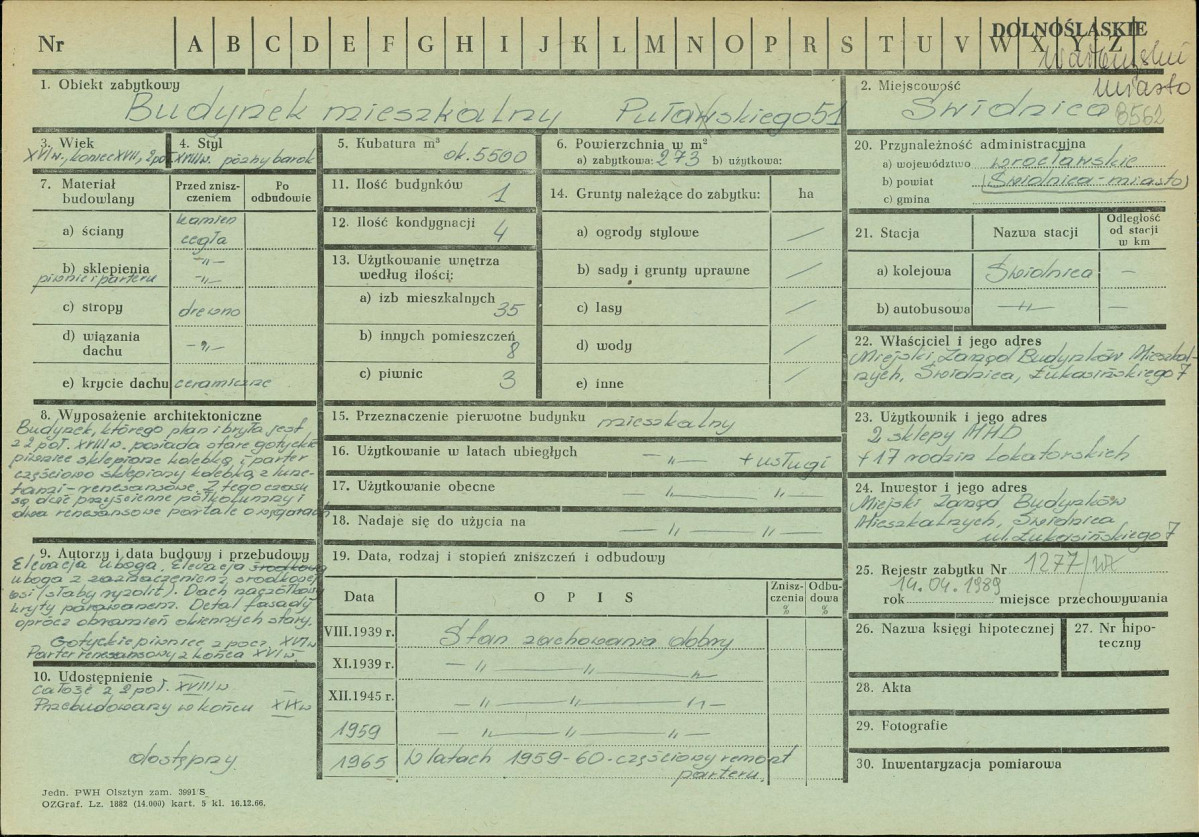 Nr A B C D E F G H I J K L M N O P R S T U V W X Y Z
DOLNOŚLĄSKIE
miasto
1. Obiekt zabytkowy
Budynek mieszkalny Pułaskiego 51
2. Miejscowość
Świdnica 8562
3. Wiek
XVI w., koniec XVII, 2 poł. XVIII w.
4. Styl
późny barok
5. Kubatura m³
ok. 5500
6. Powierzchnia w m²
a) zabytkowa: 273 b) użytkowa:
20. Przynależność administracyjna
a) województwo wrocławskie
b) powiat (Świdnica-miasto)
c) gmina
7. Materiał budowlany
Przed zniszczeniem
Po odbudowie
a) ściany kamień cegła
b) sklepienia -"-
piwnic i parteru -"-
c) stropy drewno
d) wiązania dachu -"-
e) krycie dachu ceramiczne
11. Ilość budynków 1
12. Ilość kondygnacji 4
13. Użytkowanie wnętrza według ilości:
a) izb mieszkalnych 35
b) innych pomieszczeń 8
c) piwnic 3
14. Grunty należące do zabytku: ha
a) ogrody stylowe /
b) sady i grunty uprawne /
c) lasy /
d) wody /
e) inne /
21. Stacja
Nazwa stacji
Odległość od stacji w km
a) kolejowa Świdnica —
b) autobusowa -"- —
22. Właściciel i jego adres
Miejski Zarząd Budynków Mieszkal-
nych, Świdnica, Łukasińskiego 7
8. Wyposażenie architektoniczne
Budynek, którego plan i bryła jest
z 2 poł. XVIII w. posiada stare gotyckie
piwnice sklepione kolebką i parter
częściowo sklepiony kolebką z lune-
tami - renesansowe. Z tego czasu
są dwie przyścienne półkolumny i
dwa renesansowe portale o węgarach
15. Przeznaczenie pierwotne budynku mieszkalny
16. Użytkowanie w latach ubiegłych -"- + usługi
17. Użytkowanie obecne -"- -"-
18. Nadaje się do użycia na -"- -"-
23. Użytkownik i jego adres
2 sklepy MHD
+ 17 rodzin lokatorskich
24. Inwestor i jego adres
Miejski Zarząd Budynków
Mieszkalnych, Świdnica
ul. Łukasińskiego 7
9. Autorzy i data budowy i przebudowy
Elewacja uboga. Elewacja środkowa
uboga z zaznaczeniem środkowej
osi (słaby ryzalit). Dach naczółkowy
kryty parawanem. Detal fasady
oprócz obramień okiennych stary.
Gotyckie piwnice z pocz. XVI w.
Parter renesansowy z końca XVI w
19. Data, rodzaj i stopień zniszczeń i odbudowy
Data
OPIS
Zniszczenia %
Odbudowa %
VIII.1939 r. Stan zachowania dobry
XI.1939 r. -"- -"- -"-
XII.1945 r. -"- -"- -"-
1959 -"- -"- -"-
1965 W latach 1959-60 - częściowy remont
parteru.
25. Rejestr zabytku Nr 1277/WŁ
14.04.1989
rok miejsce przechowywania
26. Nazwa księgi hipotecznej
27. Nr hipoteczny
10. Udostępnienie
całość z 2 poł. XVIII w
Przebudowany w końcu XIX w
dostępny
28. Akta
29. Fotografie
30. Inwentaryzacja pomiarowa
Jedn. PWH Olsztyn zam. 3991/S
OZGraf. Lz. 1882 (14.000) kart. 5 kl. 16.12.66.